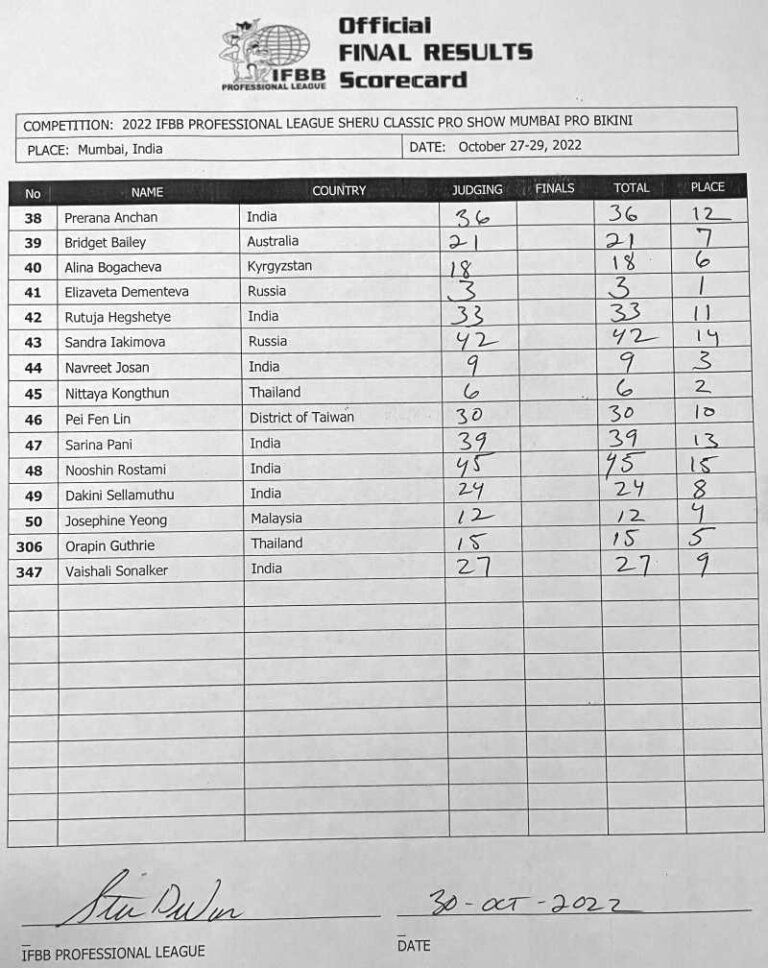 Official
FINAL RESULTS
Scorecard
IFBB
PROFESSIONAL LEAGUE
COMPETITION: 2022 IFBB PROFESSIONAL LEAGUE SHERU CLASSIC PRO SHOW MUMBAI PRO BIKINI
PLACE: Mumbai, India DATE: October 27-29, 2022
No NAME COUNTRY JUDGING FINALS TOTAL PLACE
38 Prerana Anchan India 36 36 12
39 Bridget Bailey Australia 21 21 7
40 Alina Bogacheva Kyrgyzstan 18 18 6
41 Elizaveta Dementeva Russia 3 3 1
42 Rutuja Hegshetye India 33 33 11
43 Sandra Iakimova Russia 42 42 14
44 Navreet Josan India 9 9 3
45 Nittaya Kongthun Thailand 6 6 2
46 Pei Fen Lin District of Taiwan 30 30 10
47 Sarina Pani India 39 39 13
48 Nooshin Rostami India 45 45 15
49 Dakini Sellamuthu India 24 24 8
50 Josephine Yeong Malaysia 12 12 4
306 Orapin Guthrie Thailand 15 15 5
347 Vaishali Sonalker India 27 27 9
30-OCT-2022
IFBB PROFESSIONAL LEAGUE DATE